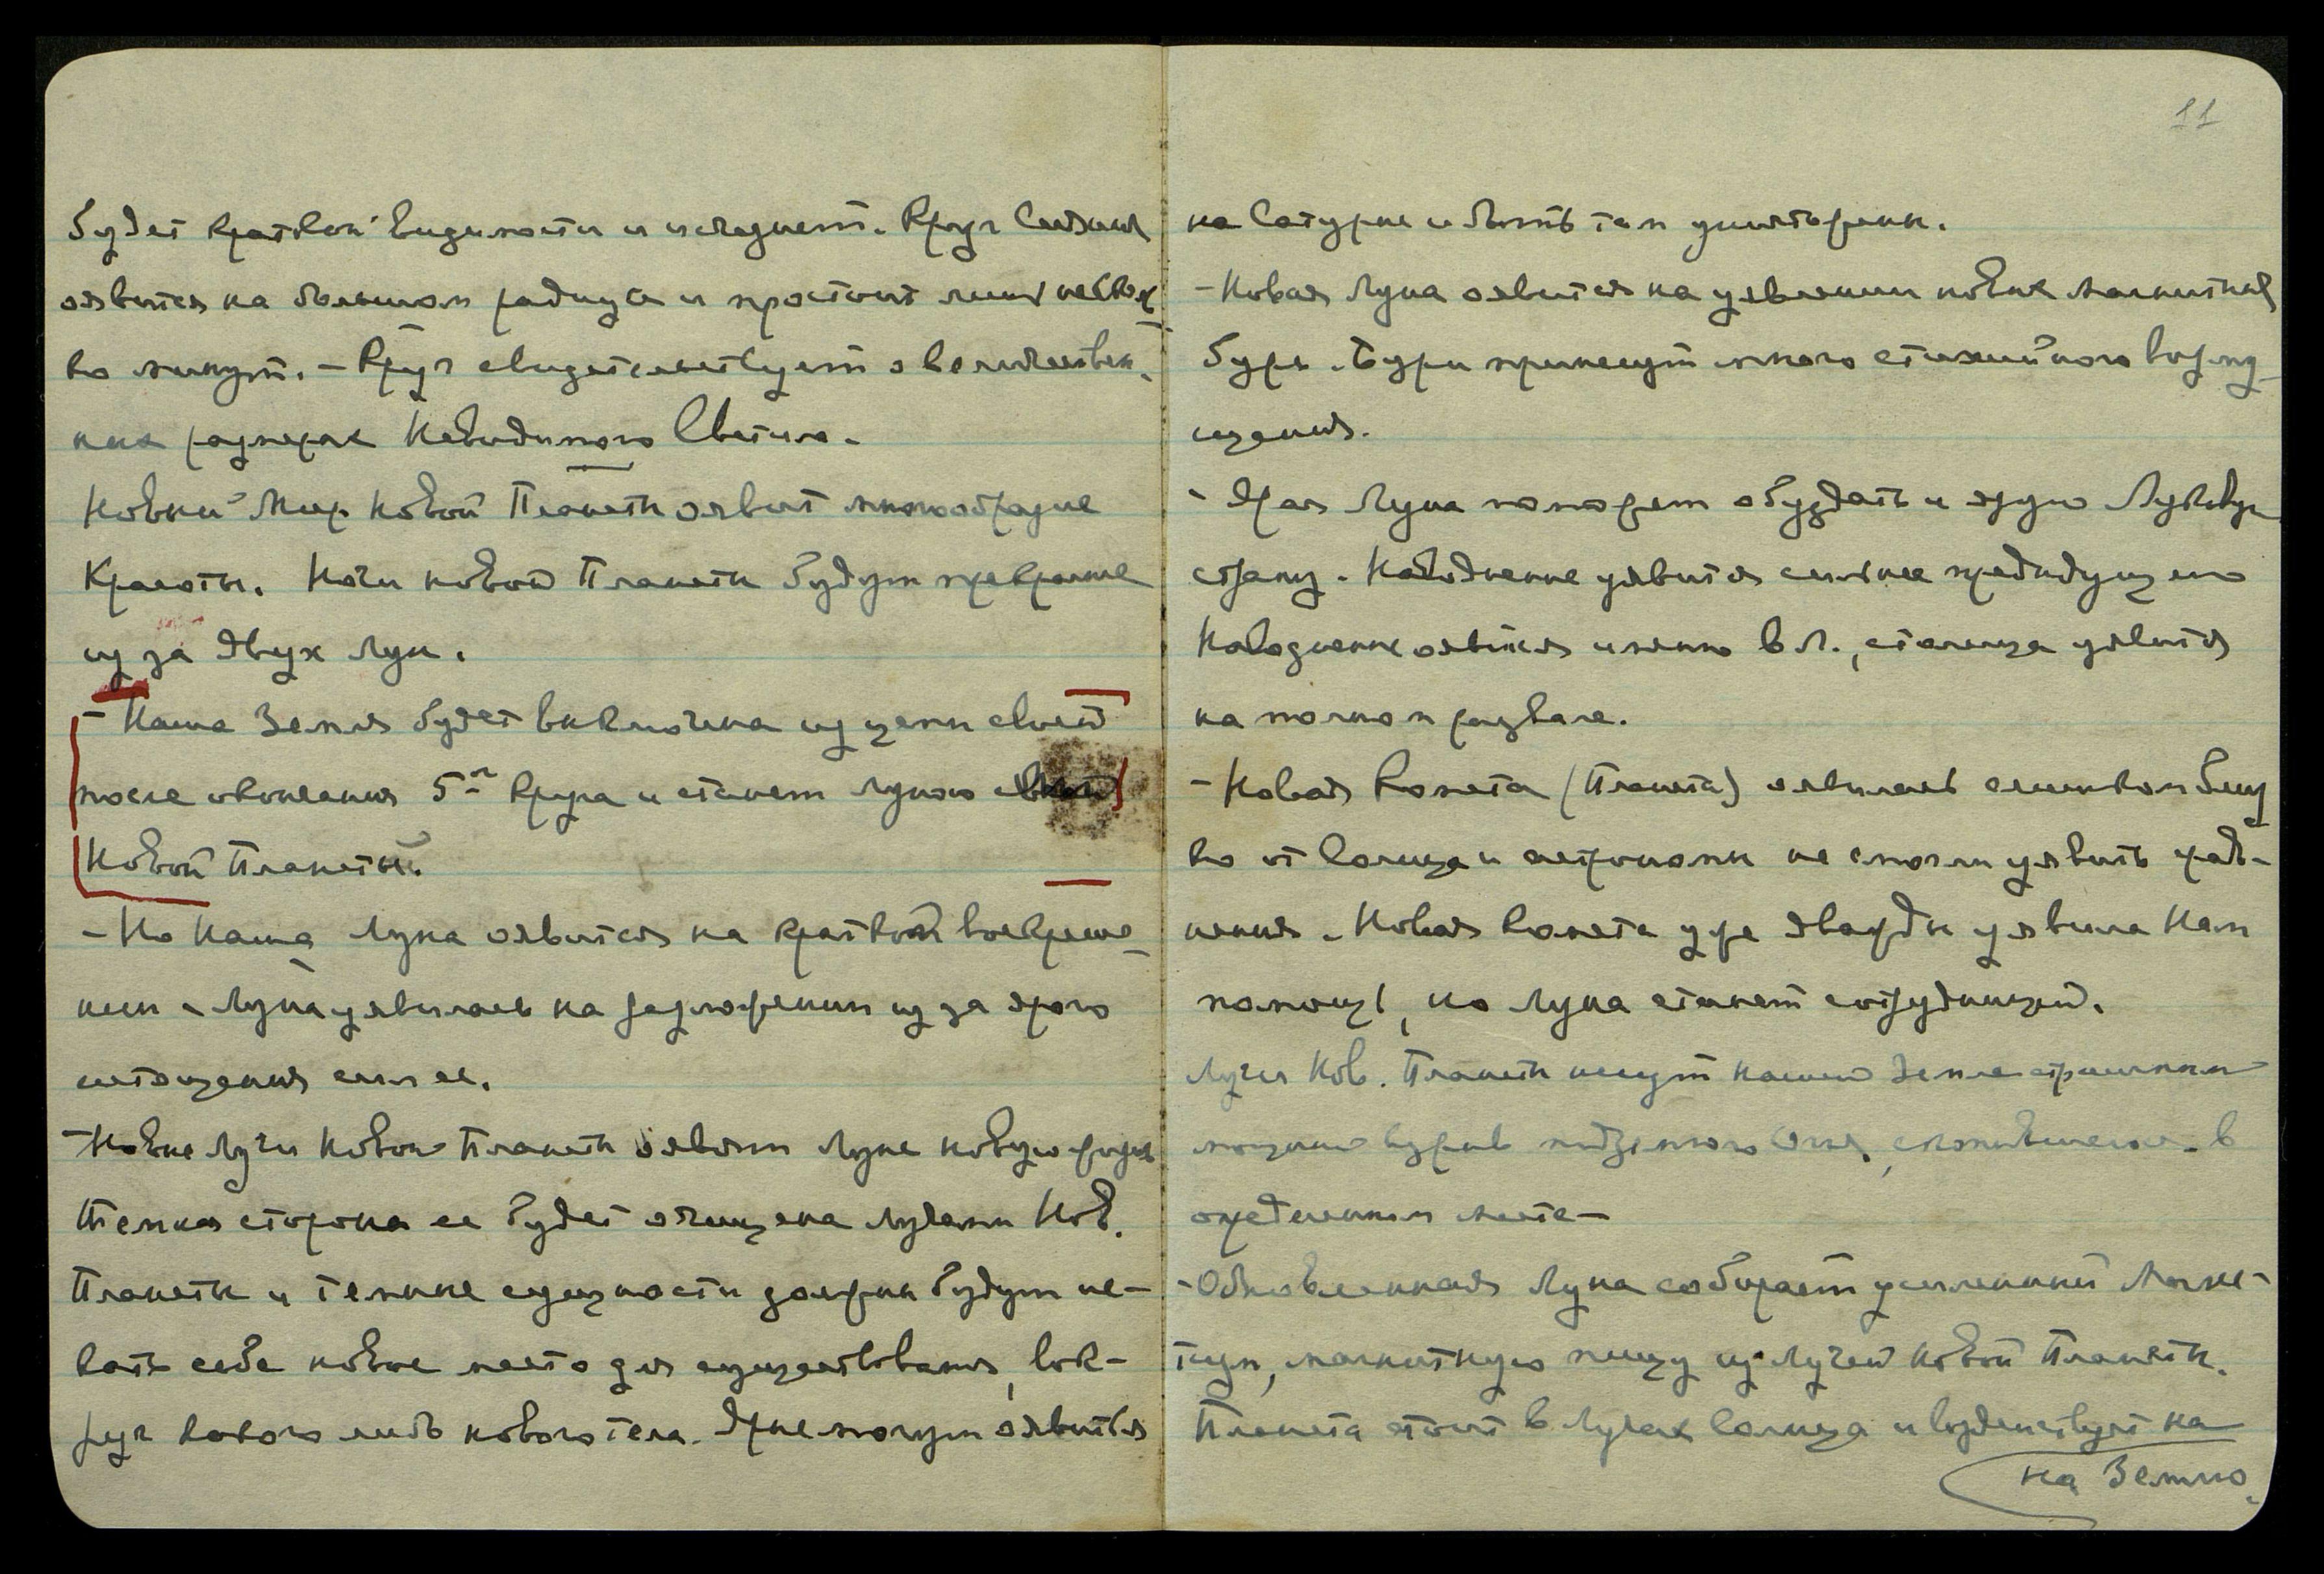 будет краткой видимости и исчезнет. Круг Сияния
оявится на большом радиусе и простоит лишь несколь
ко минут. – Круг свидетельствует о величествен-
ных размерах Невидимого Светила.
Новый Мир Новой Планеты оявит многообразие
Красоты. Ночи новой Планеты будут прекрасные
из за двух лун.
– Наша Земля будет выключена из цепи своей
после окончания 5го Круга и станет луною
Новой Планеты.
– Но наша Луна оявится на краткой воскреше-
нии. Луна уявилась на разложении из за ярого
истощения сил ее.
– Новые Лучи Новой Планеты оявят Луне новую жизнь
Темная сторона ее будет очищена лучами Нов.
Планеты и темные сущности должны будут ис-
кать себе новое место для существования, вок-
руг какого либо нового тела. Ярые могут оявиться
11
на Сатурне и быть там уничтожены.
– Новая Луна оявится на уявлении новых магнитных
бурь. Бури принесут много стихийного возму-
щения.
– Ярая Луна поможет обуздать и ярую
страну. Наводнение уявится сильнее предидущего
Наводнение оявится именно в Л., столица уявится
на полном развале.
– Новая Комета (Планета) оявилась слишком близ
ко от Солнца и астрономы не смогли уявить
Новая Комета уже дважды уявила Нам
помощь, но Луна станет сотрудницей.
Лучи Нов. Планеты несут нашей Земле страшный
мощный взрыв подземного Огня, скопившегося в
определенном месте –
– Обновленная Луна собирает усиленный Магне-
тизм, магнитную пищу из Лучей Новой Планеты.
Планета стоит в Лучах Солнца и воздействует на
на Землю.